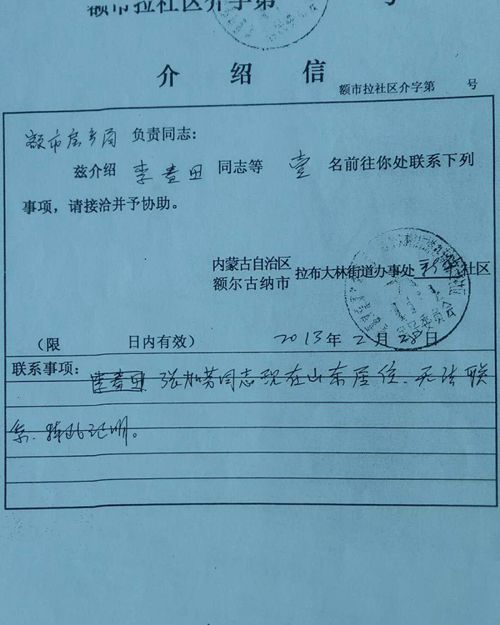 额市拉社区介字第 号
介绍信
额市拉社区介字第 号
额市房产局 负责同志:
兹介绍 李青田 同志等 壹 名前往你处联系下列
事项，请接洽并予协助。
内蒙古自治区
额尔古纳市 拉布大林街道办事处 社区
(限 日内有效) 2013年2月28日
联系事项: 同志现在山东居住、无法联
系、特此证明。